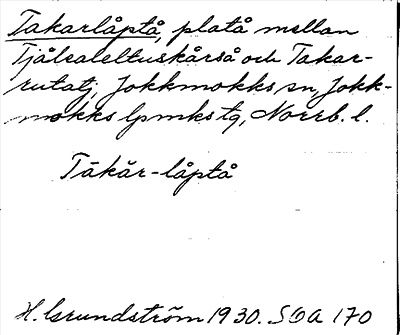 Takarlåptå, platå mellan
Tjålealeltuskårså och Takar-
rutatj, Jokkmokks sn, Jokk-
mokks lpmks tg, Norrb. l.
Tākăr-låptå
H. Grundström 1930. SOA 170